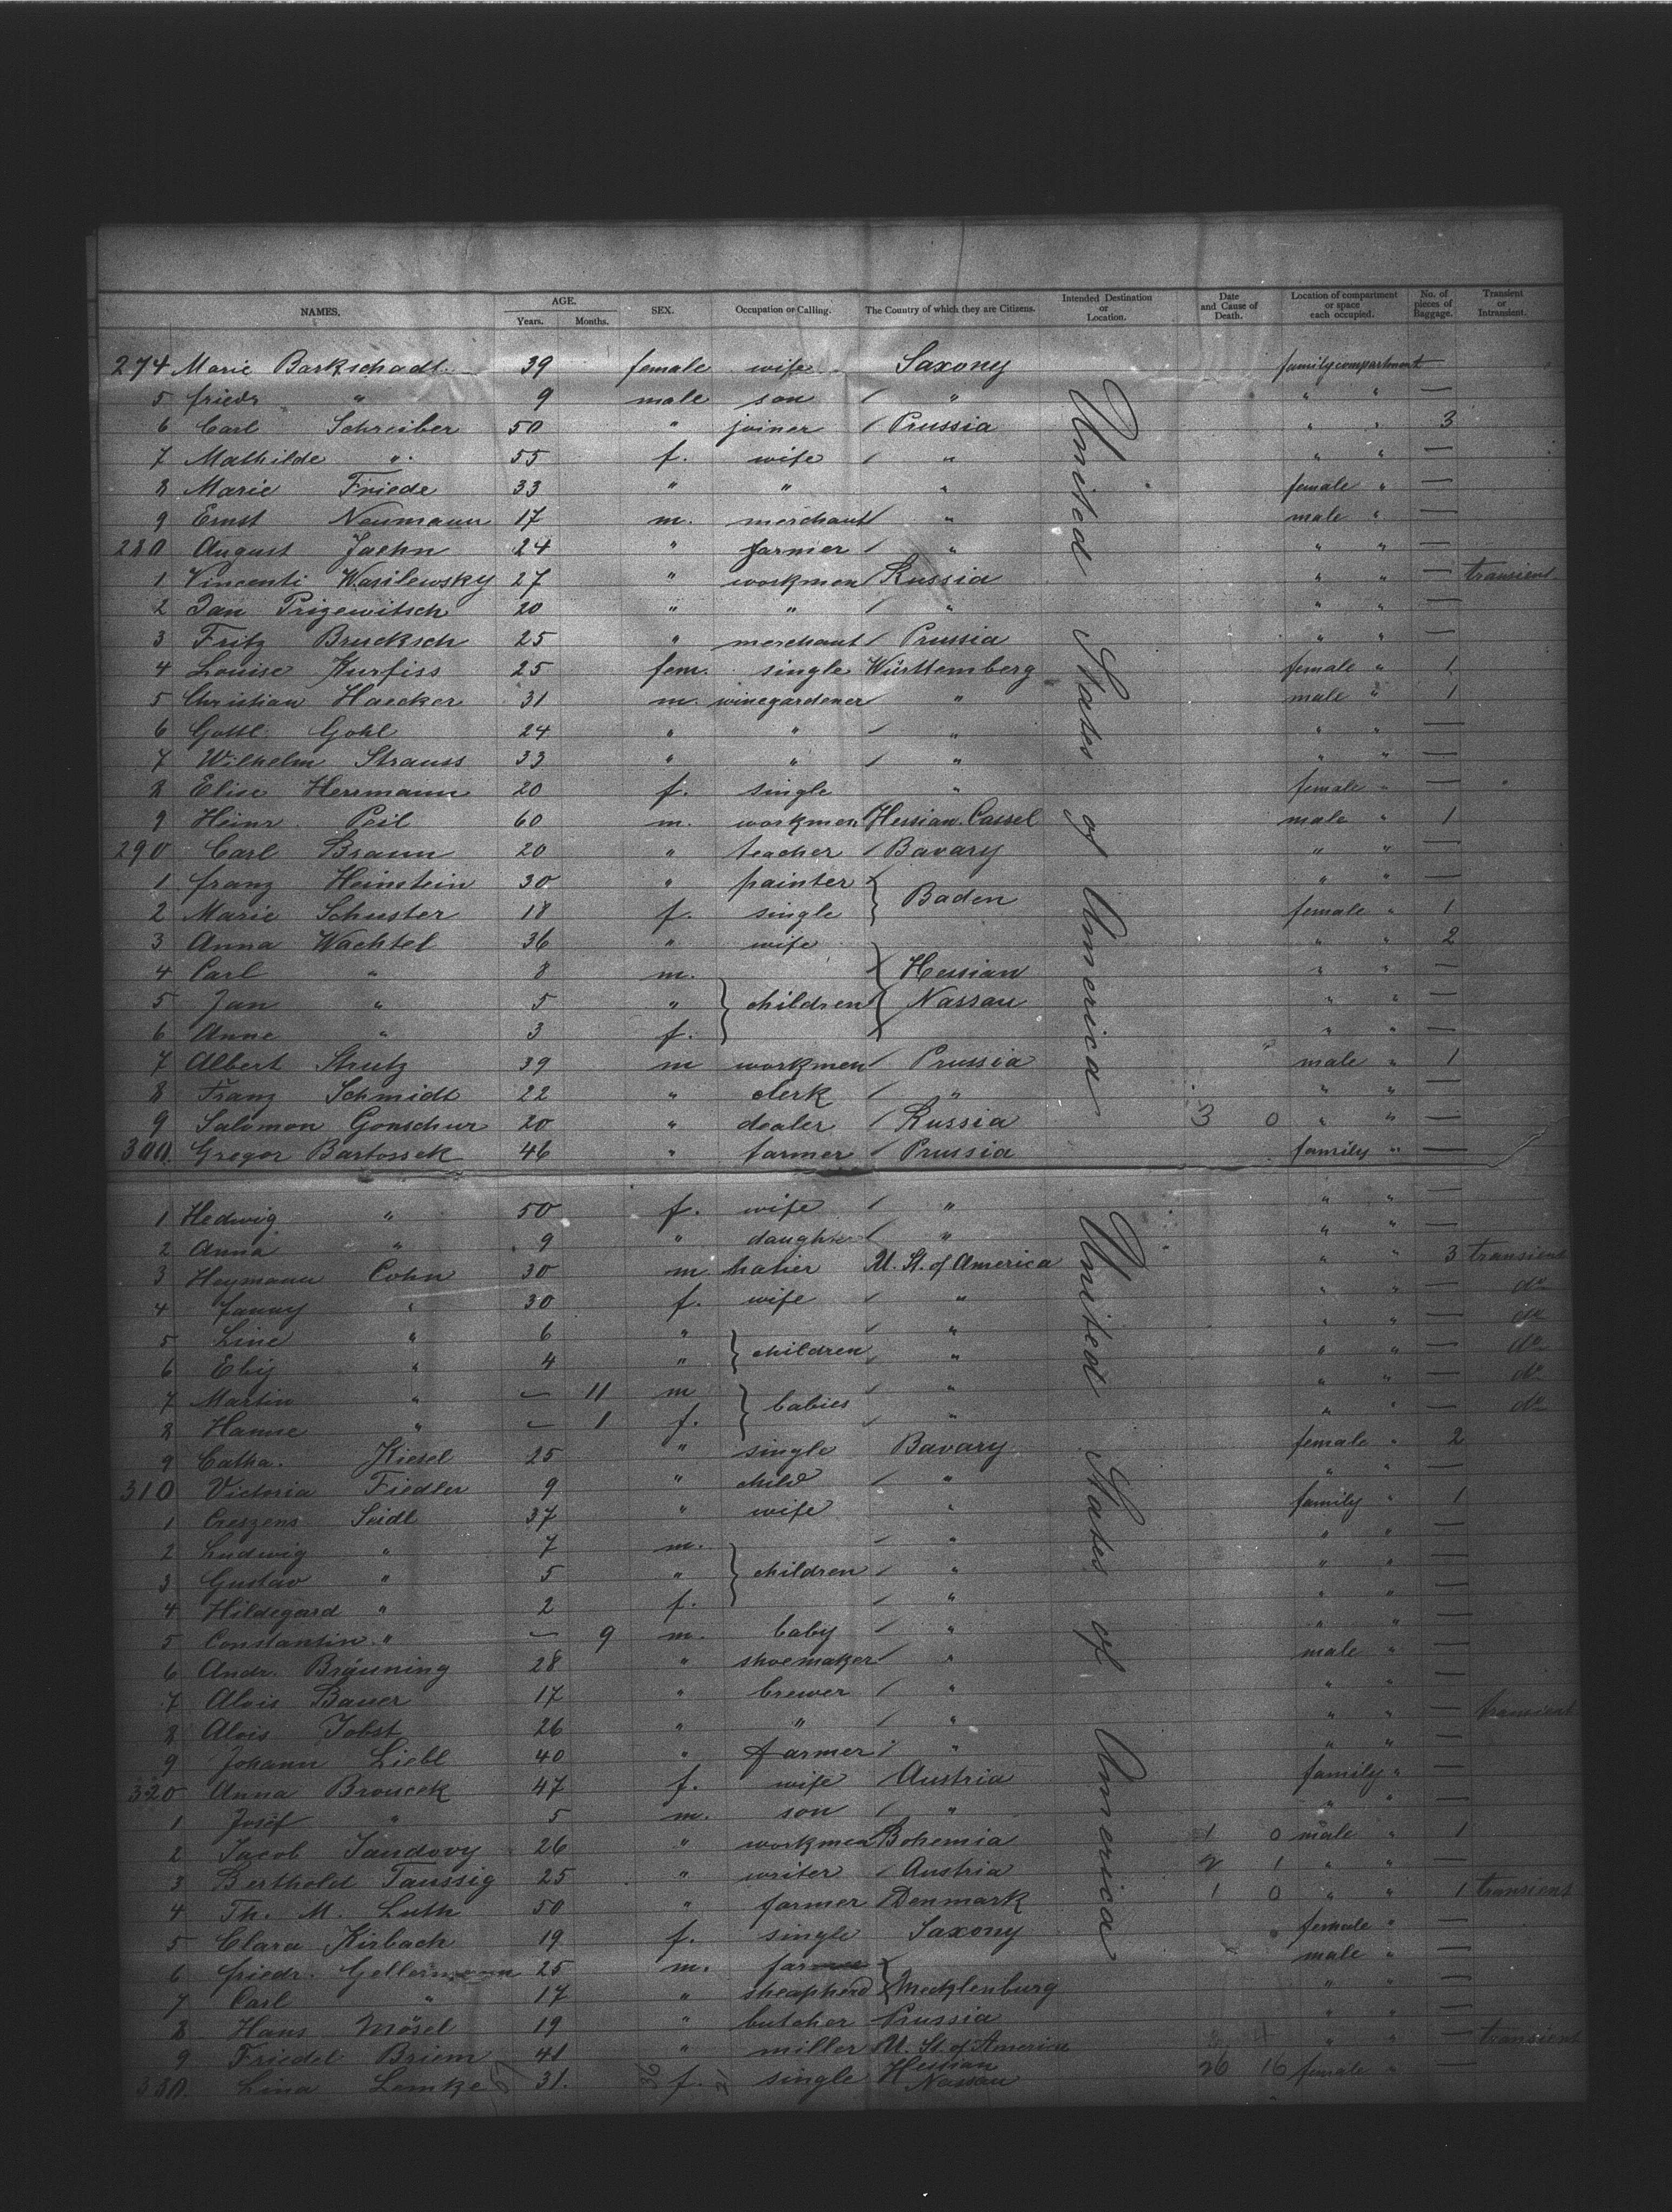 NAMES. AGE. Years. Months. SEX. Occupation or Calling. The Country of which they are Citizens. Intended Destination or Location. Date and Cause of Death. Location of compartment or space each occupied. No. of pieces of Baggage. Transient or Intransient.
274 Marie Barkschadt 39 female wife Saxony family compartment
5 friedr " 9 male son / " " " —
6 Carl Schreiber 50 " joiner / Prussia " " 3
7 Mathilde " 55 f. wife / " " " —
8 Marie Friede 33 " " " female " —
9 Ernst Neumann 17 m. merchant / " male " —
280 August Jaehn 24 " farmer / " " " —
1 Vincenti Wasilewsky 27 " workmen Russia " " — transient
2 Jan Prizewitsch 20 " " / " " " —
3 Fritz Brucksch 25 " merchant / Prussia " " —
4 Louise Kurfiss 25 fem. single Württemberg female " 1
5 Christian Haecker 31 m. winegardener " male " 1
6 Gottl. Gohl 24 " " / " " " —
7 Wilhelm Strauss 33 " " / " " " —
8 Elise Herrmann 20 f. single " female " —
9 Heinr. Peil 60 m. workmen Hessian Cassel male " 1
290 Carl Braun 20 " teacher / Bavary " " —
1 franz Heinstein 30 " painter / Baden " " —
2 Marie Schuster 18 f. single female " 1
3 Anna Wachtel 36 " wife " " 2
4 Carl " 8 m. Hessian " " —
5 Jan " 5 " children Nassau " " —
6 Anne " 3 f. " " —
7 Albert Strutz 39 m workmen / Prussia male " 1
8 Franz Schmidt 22 " clerk / " " " —
9 Salomon Gonschur 20 " dealer / Russia 3 0 " " —
300. Gregor Bartossek 46 " farmer / Prussia family " —
1 Hedwig " 50 f. wife / " " " —
2 Anna " 9 " daughter / " " " —
3 Heymann Cohn 30 m. hatier U. St. of America " " 3 transient
4 fanny " 30 f. wife / " " " — do
5 Line " 6 " children / " " " — do
6 Eby " 4 " / " " " — do
7 Martin " — 11 m babies / " " " — do
8 Hanne " — 1 f. / " " " — do
9 Catha. Kiesel 25 " single Bavary female " 2
310 Victoria Fiedler 9 " child / " " " —
1 Creszens Seidl 37 " wife " family " 1
2 Ludwig " 7 m. / " " " —
3 Gustav " 5 " children / " " " —
4 Hildegard " 2 f. / " " " —
5 Constantin " — 9 m. baby / " " " —
6 Andr. Bräuning 28 " shoemaker / " male " —
7 Alois Bauer 17 " brewer / " " " —
8 Alois Jobst 26 " " / " " " — transient
9 Johann Liebl 40 " farmer / " " " —
320 Anna Broucek 47 f. wife Austria family " —
1 Josef " 5 m. son / " " " —
2 Jacob Sandovy 26 " workmen Bohemia 1 0 male " 1
3 Berthold Taussig 25 " writer / Austria 2 1 " " —
4 Th. M. Luth 50 " farmer Denmark 1 0 " " 1 transient
5 Clara Kirbach 19 f. single Saxony female " —
6 friedr. Gellermann 25 m. male " —
7 Carl " 17 " sheapherd Mecklenburg " " —
8 Hans Mösel 19 " butcher Prussia " " —
9 Friedel Briem 41 " miller U. St. of America " " — transient
330. Lina Lemke 31. f. single Hessian Nassau 26 16 female " —
United States of America
United States of America